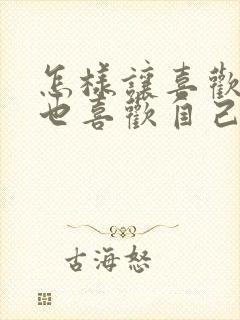 怎樣讓喜歡
也喜歡自己
古海怒